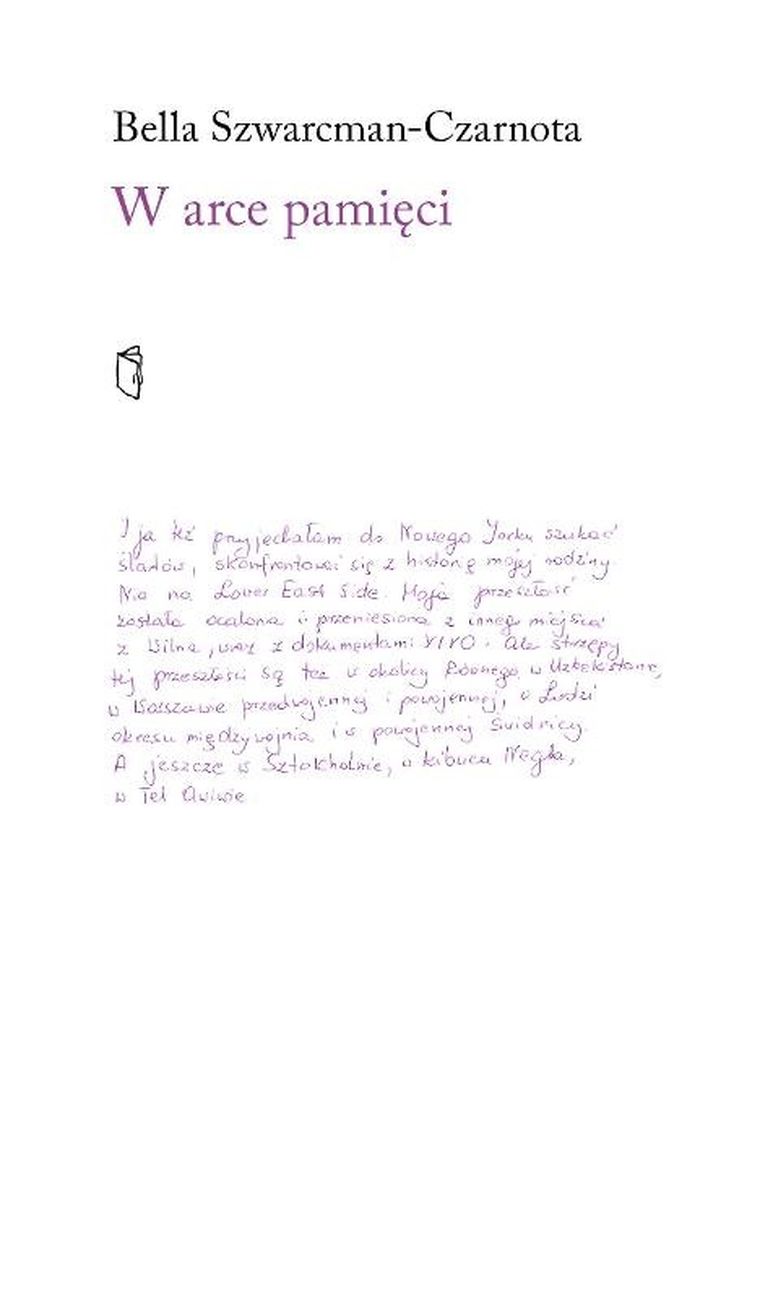 Bella Szwarcman-Czarnota
W arce pamięci
I ja też przyjechałam do Nowego Jorku szukać
śladów, skonfrontować się z historią mojej rodziny.
Nie na Lower East Side. Moja przeszłość
została ocalona i przeniesiona z innego miejsca
z Wilna, wraz z dokumentami YIVO. Ale strzępy
tej przeszłości są też w okolicy Równego, w Uzbekistanie,
w Warszawie przedwojennej i powojennej, w Łodzi
okresu międzywojnia i w powojennej Świdnicy.
A jeszcze w Sztokholmie, w kibucu Negba,
w Tel Awiwie